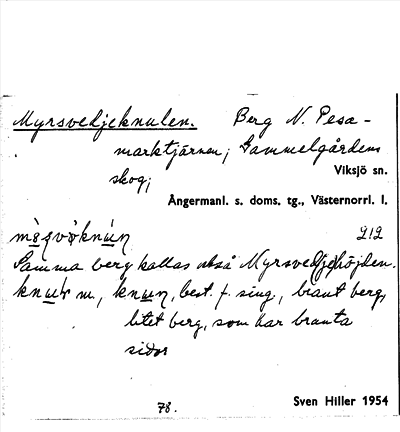 Myrsvedjeknulen. Berg N. Pesa-
marktjärnen; Gammelgårdens
skog;
Viksjö sn.
Ångermanl. s. doms. tg., Västernorrl. l.
212
Samma berg kallas också Myrsved(je)höjden.
m., best. f. sing., brant berg,
litet berg, som har branta
sidor
78.
Sven Hiller 1954